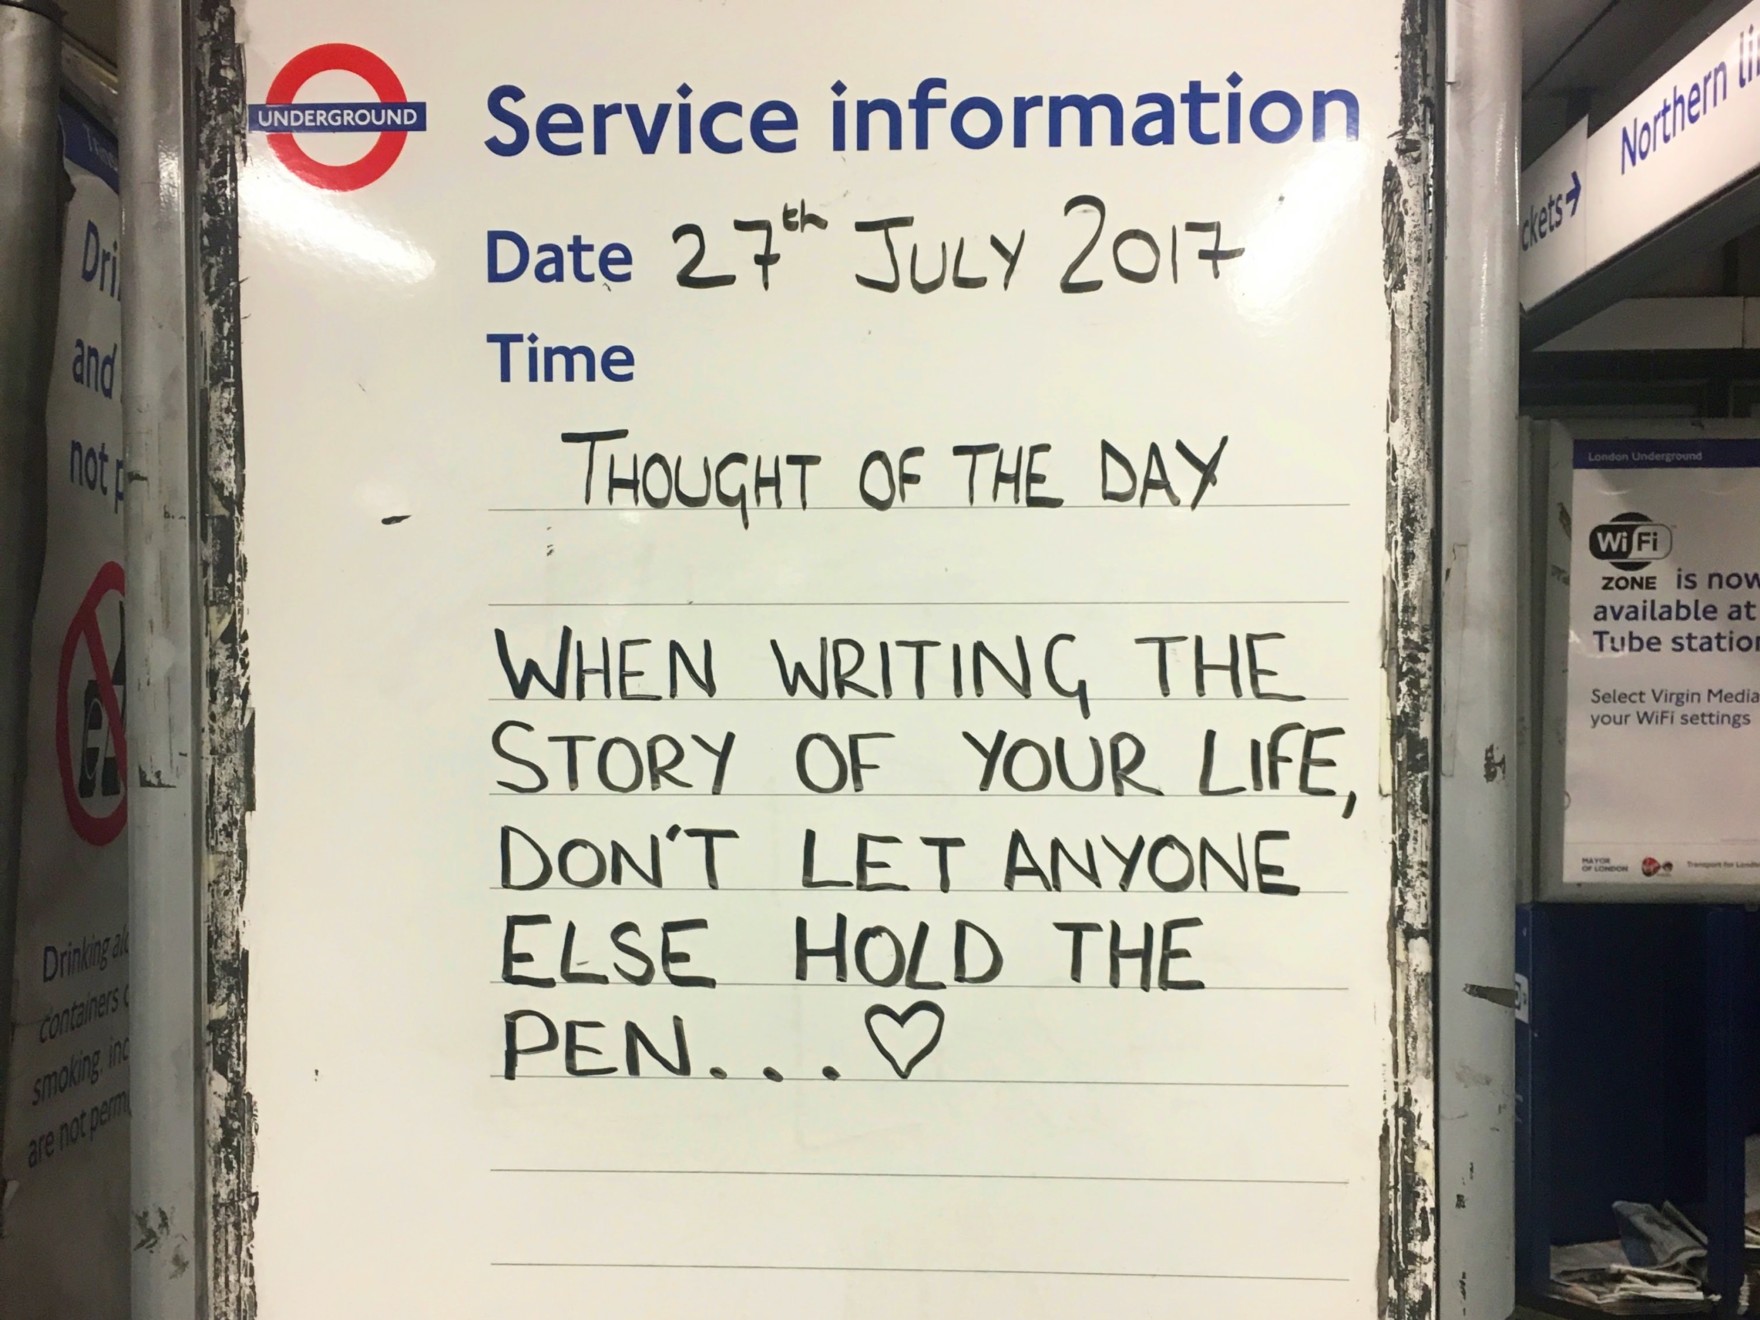 UNDERGROUND
Service information
Date 27th JULY 2017
Time
THOUGHT OF THE DAY
WHEN WRITING THE
STORY OF YOUR LIFE,
DON'T LET ANYONE
ELSE HOLD THE
PEN... ♡
Northern
London Underground
WiFi
ZONE is now
available at
Tube
Select Virgin Media
your WiFi settings
MAYOR
OF LONDON
Transport for
and
not
Drinking
containers
smoking,
are not